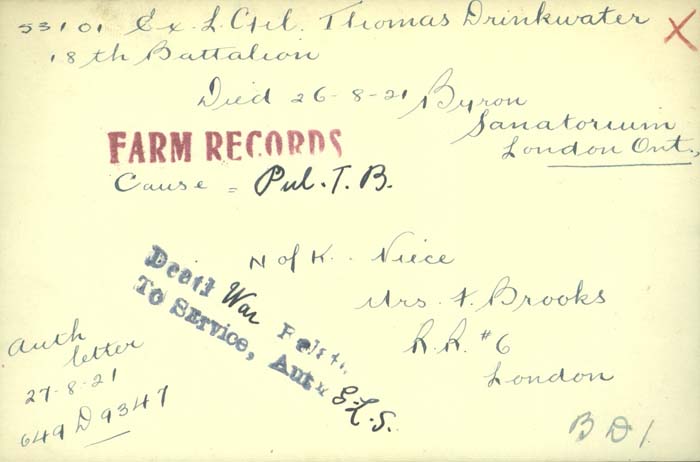 53101 Ex. L. Cpl. Thomas Drinkwater X
18th Battalion
Died 26-8-21 Byron
Sanatorium
London Ont.,
FARM RECORDS
Cause = Pul. T. B.
N of K. Niece
Mrs. F. Brooks
R. R. #6
London
Death War
To Service, Auth
E.L.S.
Auth
letter
27-8-21
649 D 9347
B D 1